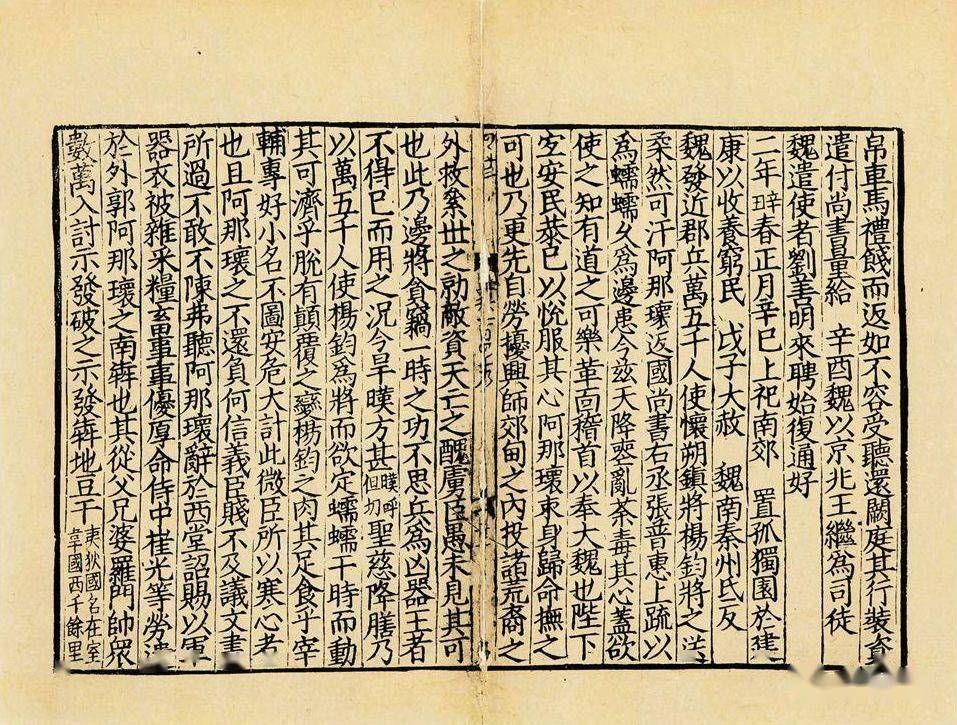 帛車馬禮餞而返如不容受聽還闕庭其行裝資
遣付尚書量給　辛酉魏以京兆王繼爲司徒
魏遣使者劉善明來聘始復通好
二年辛丑春正月辛巳上祀南郊　置孤獨園於建
康以收養窮民　戊子大赦　魏南秦州氐反
魏發近郡兵萬五千人使懷朔鎮將楊鈞將之送
柔然可汗阿那瓌返國尚書右丞張普惠上疏以
爲蠕蠕久爲邊患今玆天降喪亂荼毒其心蓋欲
使之知有道之可樂革面稽首以奉大魏也陛下
宜安民恭己以悅服其心阿那瓌束身歸命撫之
可也乃更先自勞擾興師郊甸之內投諸荒裔之
外救累世之勍敵資天亡之醜虜臣愚未見其可
也此乃邊將貪竊一時之功不思兵爲凶器王者
不得已而用之況今旱暵方甚暵呼但切聖慈降膳乃
以萬五千人使楊鈞爲將而欲定蠕蠕干時而動
其可濟乎脫有顛覆之變楊鈞之肉其足食乎宰
輔專好小名不圖安危大計此微臣所以寒心者
也且阿那瓌之不還負何信義臣賤不及議文書
所過不敢不陳弗聽阿那瓌辭於西堂詔賜以軍
器衣被雜采糧畜事事優厚命侍中崔光等勞遣
於外郭阿那瓌之南犇也其從父兄婆羅門帥眾
數萬入討示發破之示發犇地豆干夷狄國名在室韋國西千餘里